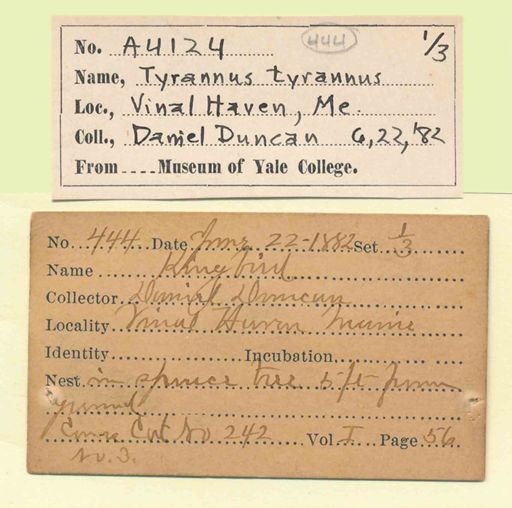 No. A4124 444 1/3
Name, Tyrannus tyrannus
Loc., Vinal Haven, Me.
Coll., Daniel Duncan 6,22,'82
From .... Museum of Yale College.
No. 444 Date June 22-1882 Set 1/3
Name Kingbird
Collector Daniel Duncan
Locality Vinal Haven Maine
Identity Incubation,
Nest in spruce tree 5 ft from
ground
Cat No 242 Vol I Page 56
No. 3.